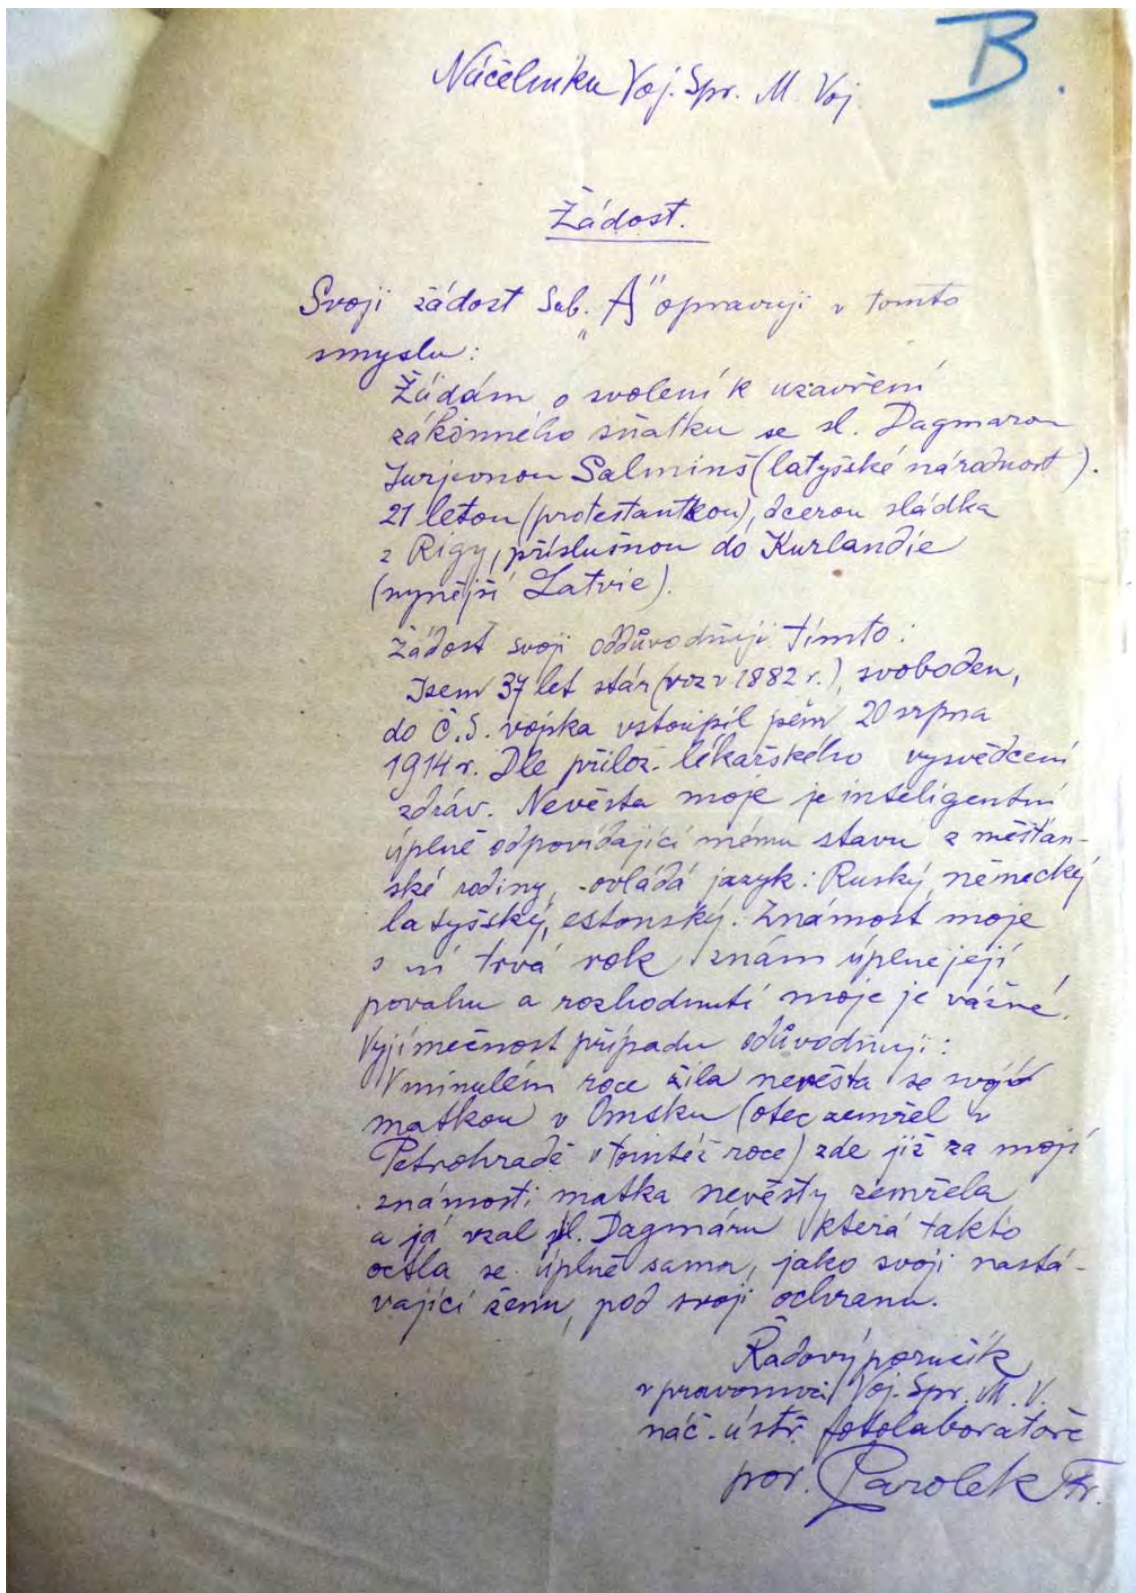 B.
Náčelníku Voj. Spr. M. Voj.
Žádost.
Svoji žádost Sub. „A" opravuji v tomto
smyslu:
Žádám o svolení k uzavření
zákonného sňatku se sl. Dagmarou
Jurjevnou Salminš (latyšské národnost).
21 letou (protestantkou), dcerou sládka
z Rigy, příslušnou do Kurlandie
(nynější Latvie).
Žádost svoji oddůvodňuji tímto:
Jsem 37 let stár (roz v 1882 r.), svoboden,
do Č.S. vojska vstoupil jsem 20 srpna
1914 r. Dle přilož. lékařského vysvědčení
zdráv. Nevěsta moje je inteligentní
úplně odpovídající mému stavu z měšťan-
ské rodiny, ovládá jazyk: Ruský, německý
latyšský, estonský. Známost moje
s ní trvá rok znám úplne její
povahu a rozhodnutí moje je vážné.
Vyjímečnost případu odůvodňuji:
V minulém roce žila nevěsta se svojí
matkou v Omsku (otec zemřel v
Petrohradě v tomtéž roce) zde již za mojí
známosti matka nevěsty zemřela
a já vzal sl. Dagmáru která takto
octla se úplně sama, jako svoji nastá-
vající ženu, pod svoji ochranu.
Řadový poručík
v pravomoci Voj. Spr. M. V.
náč. ústř. fotolaboratoře
por. Parolek Fr.